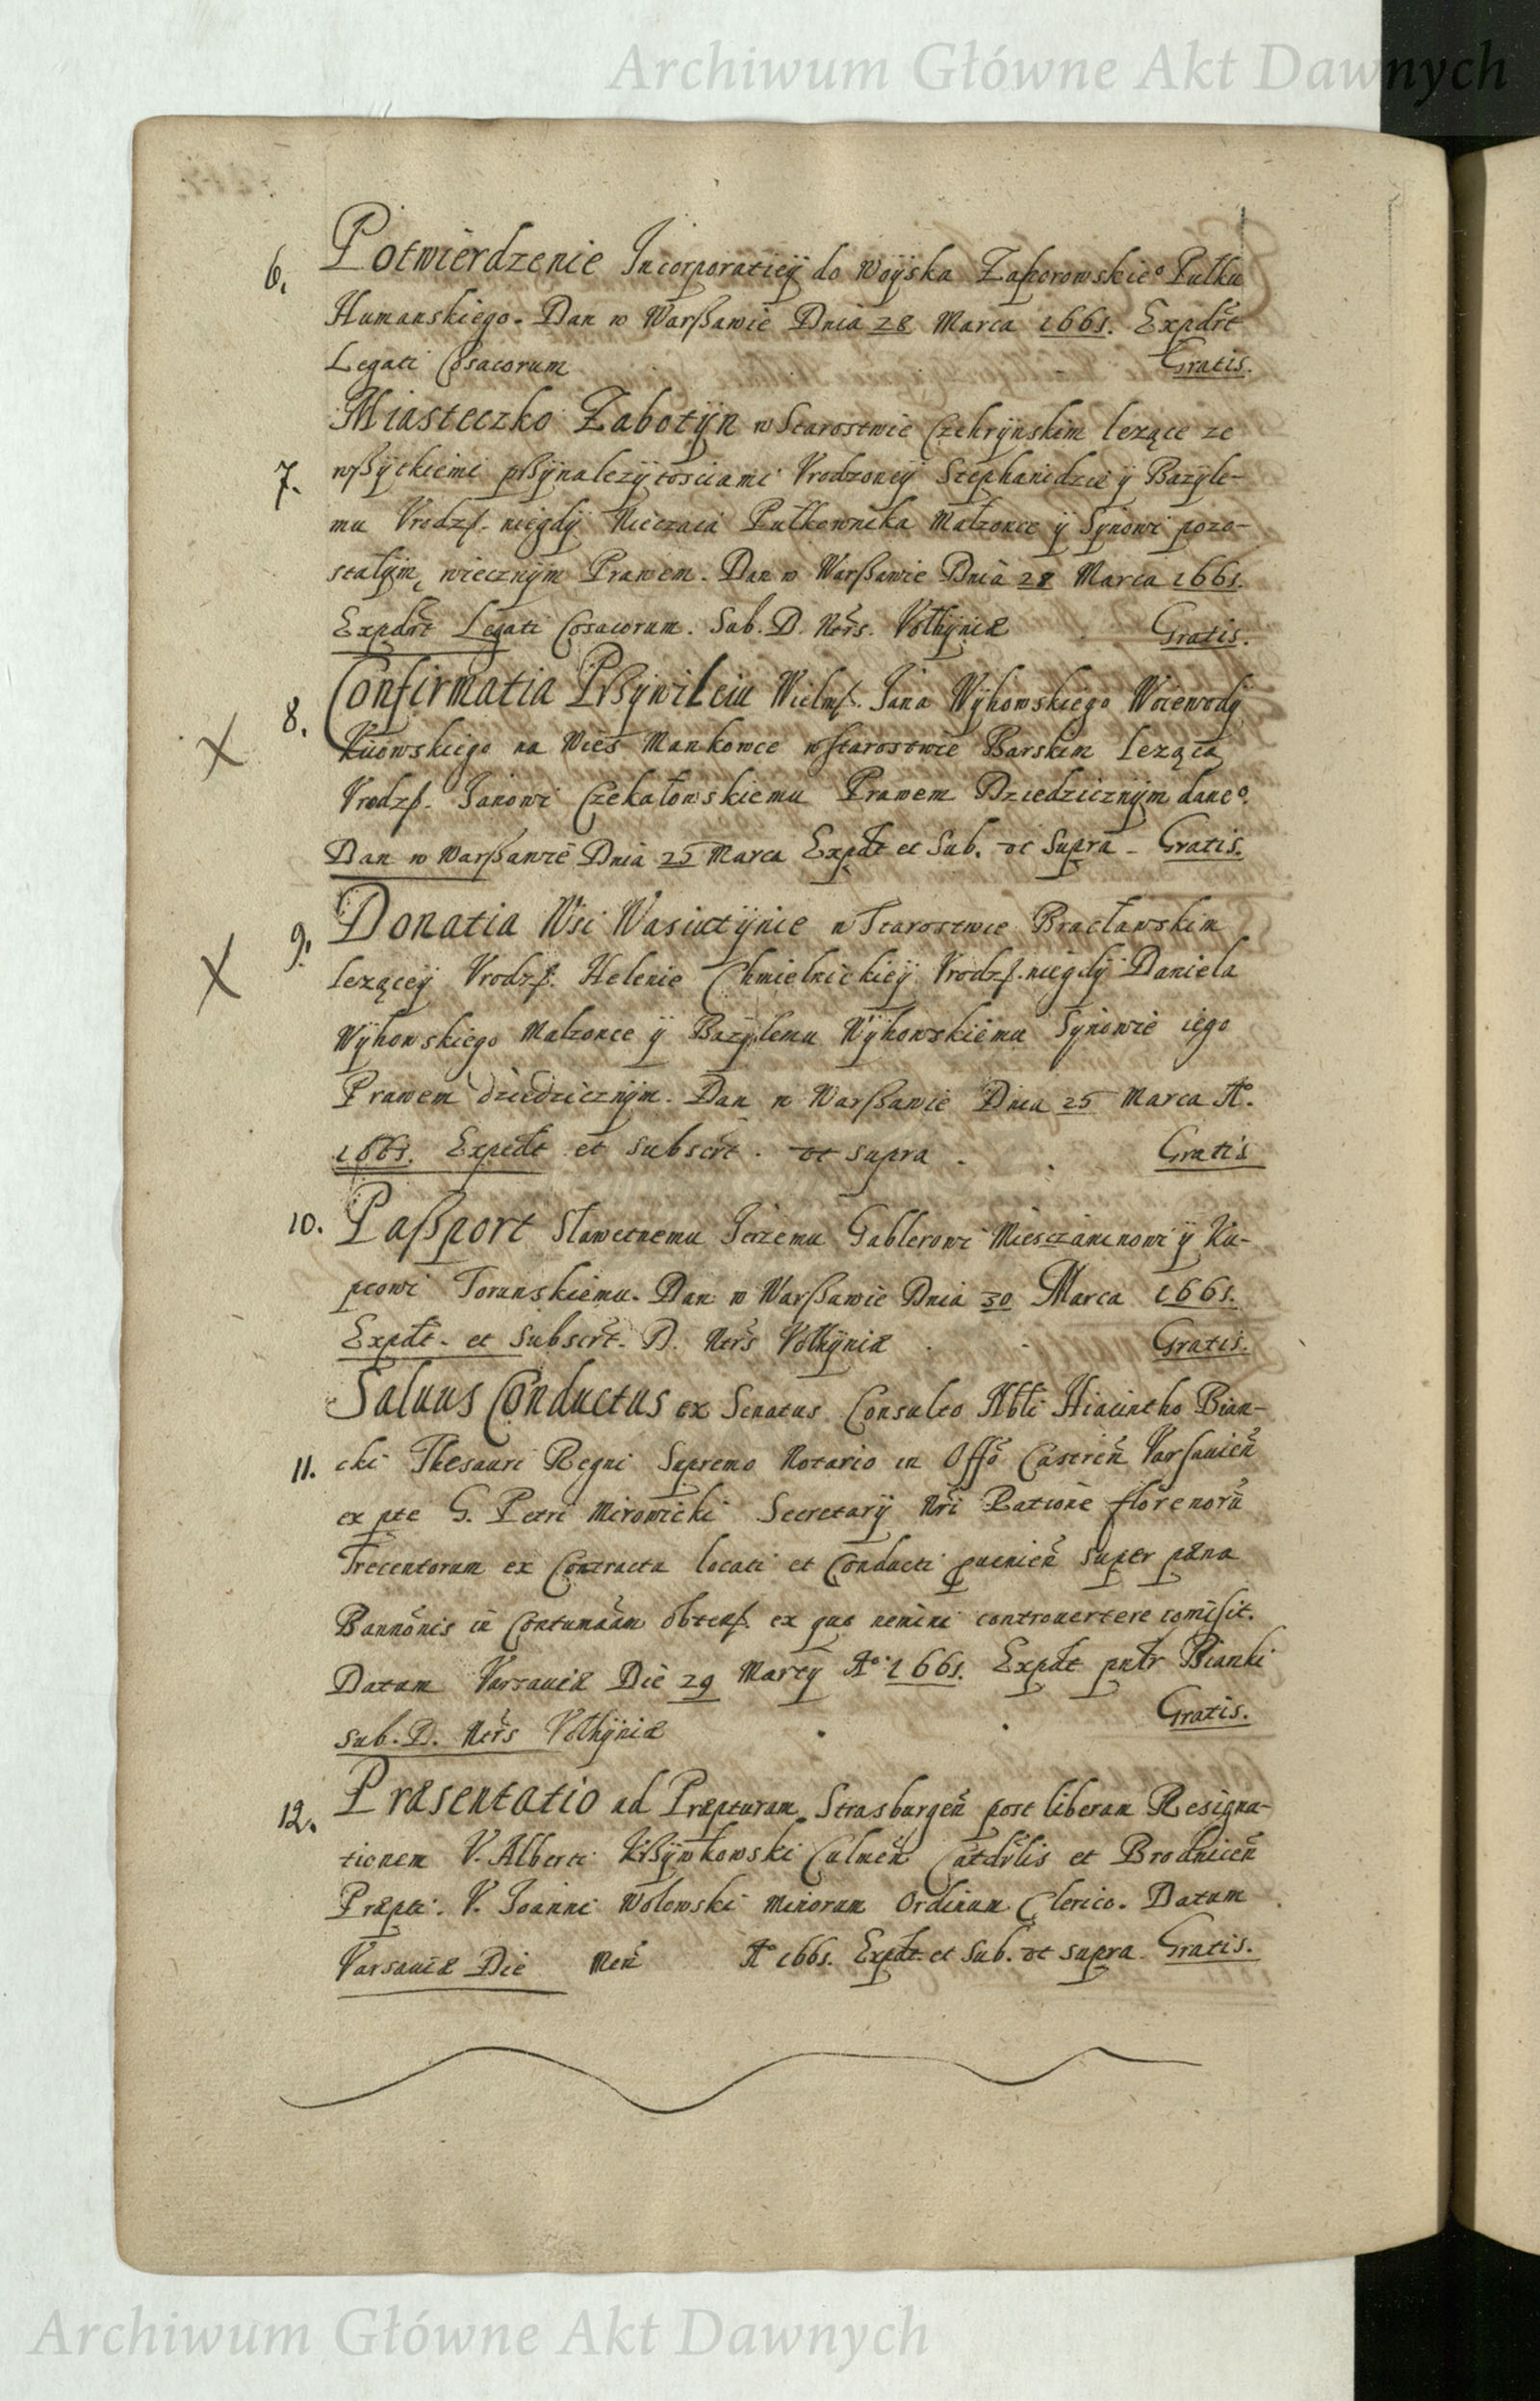 Archiwum Główne Akt Dawnych
6. Potwierdzenie Incorporatiey do Woÿska Zaporowskieº Pułku
Humanskiego. Dan w Warßawie Dnia 28 Marca 1661. Expdŕt
Legati Cosacorum Gratis.
Miasteczko Zabotÿn w Starostwie Czehrÿnskim lezące ze
7. wßÿtkiemi pßÿnalezÿtosciami Vrodzoneÿ Stephanidzie ÿ Bazÿle-
mu Vrodzſ. niegdÿ Nieczaia Pułkownika Małzonce ÿ Sÿnowi pozo-
stałÿm, wiecznÿm Prawem. Dan w Warßawie Dnia 28 Marca 1661.
Expdŕt Legati Cosacorum. Sub. D. Ntrs. Vołhÿniæ Gratis.
8. Confirmatia Pßÿwileiu Wielmſ. Jana Wÿhowskiego Woiewodÿ
X Kiiowskiego na Wies Mankowce w starostwie Barskim lezącą
Vrodzſ. Janowi Czekałowskiemu Prawem Dziedzicznÿm daneº.
Dan w Warßawie Dnia 25 Marca Expdt et Sub. vt Supra - Gratis.
9. Donatia Wsi Wasiutÿnce w Starostwie Bracławskim
X leząceÿ Vrodzſ. Helenie Chmielnickieÿ Vrodzſ. niegdÿ Daniela
Wÿhowskiego Małzonce ÿ Bazÿlemu Wÿhowskiemu Sÿnowie iego
Prawem dziedzicznÿm. Dan w Warßawie Dnia 25 Marca Aº.
1661. Expedt et subscrt. vt supra. Gratis
10. Paßport Sławetnemu Jerzemu Gablerowi Miesczaninowi ÿ Ku-
pcowi Torunskiemu. Dan w Warßawie Dnia 30 Marca 1661.
Expdt. et subscrt. D. Ntrs Vołhÿniæ Gratis.
Saluus Conductus ex Senatus Consulto Nbli Hiacintho Bian-
11. cki Thesauri Regni Supremo Notario in Offo Castren Varsauien
ex pte G. Petri Mirowicki Secretarÿ Nri Ratione florenoru
Trecentorum ex Contractu locati et Conducti puenien super pæna
Bannonis in Contumaam obtenſ. ex quo nemini controuertere comisit.
Datum Varsauiæ Die 29 Martÿ Aº. 1661. Expdt pntr Bianki
sub. D. Ntrs Vołhÿniæ Gratis.
12. Præsentatio ad Præpturam Strasburgen post liberam Resigna-
tionem V. Alberti Krßÿwkowski Culmen Catdrlis et Brodnicen
Præpti. V. Joanni Wolowski Minorum Ordinum Clerico. Datum
Varsauiæ Die Men Aº 1661. Expdt et Sub. vt supra Gratis.
Archiwum Główne Akt Dawnych